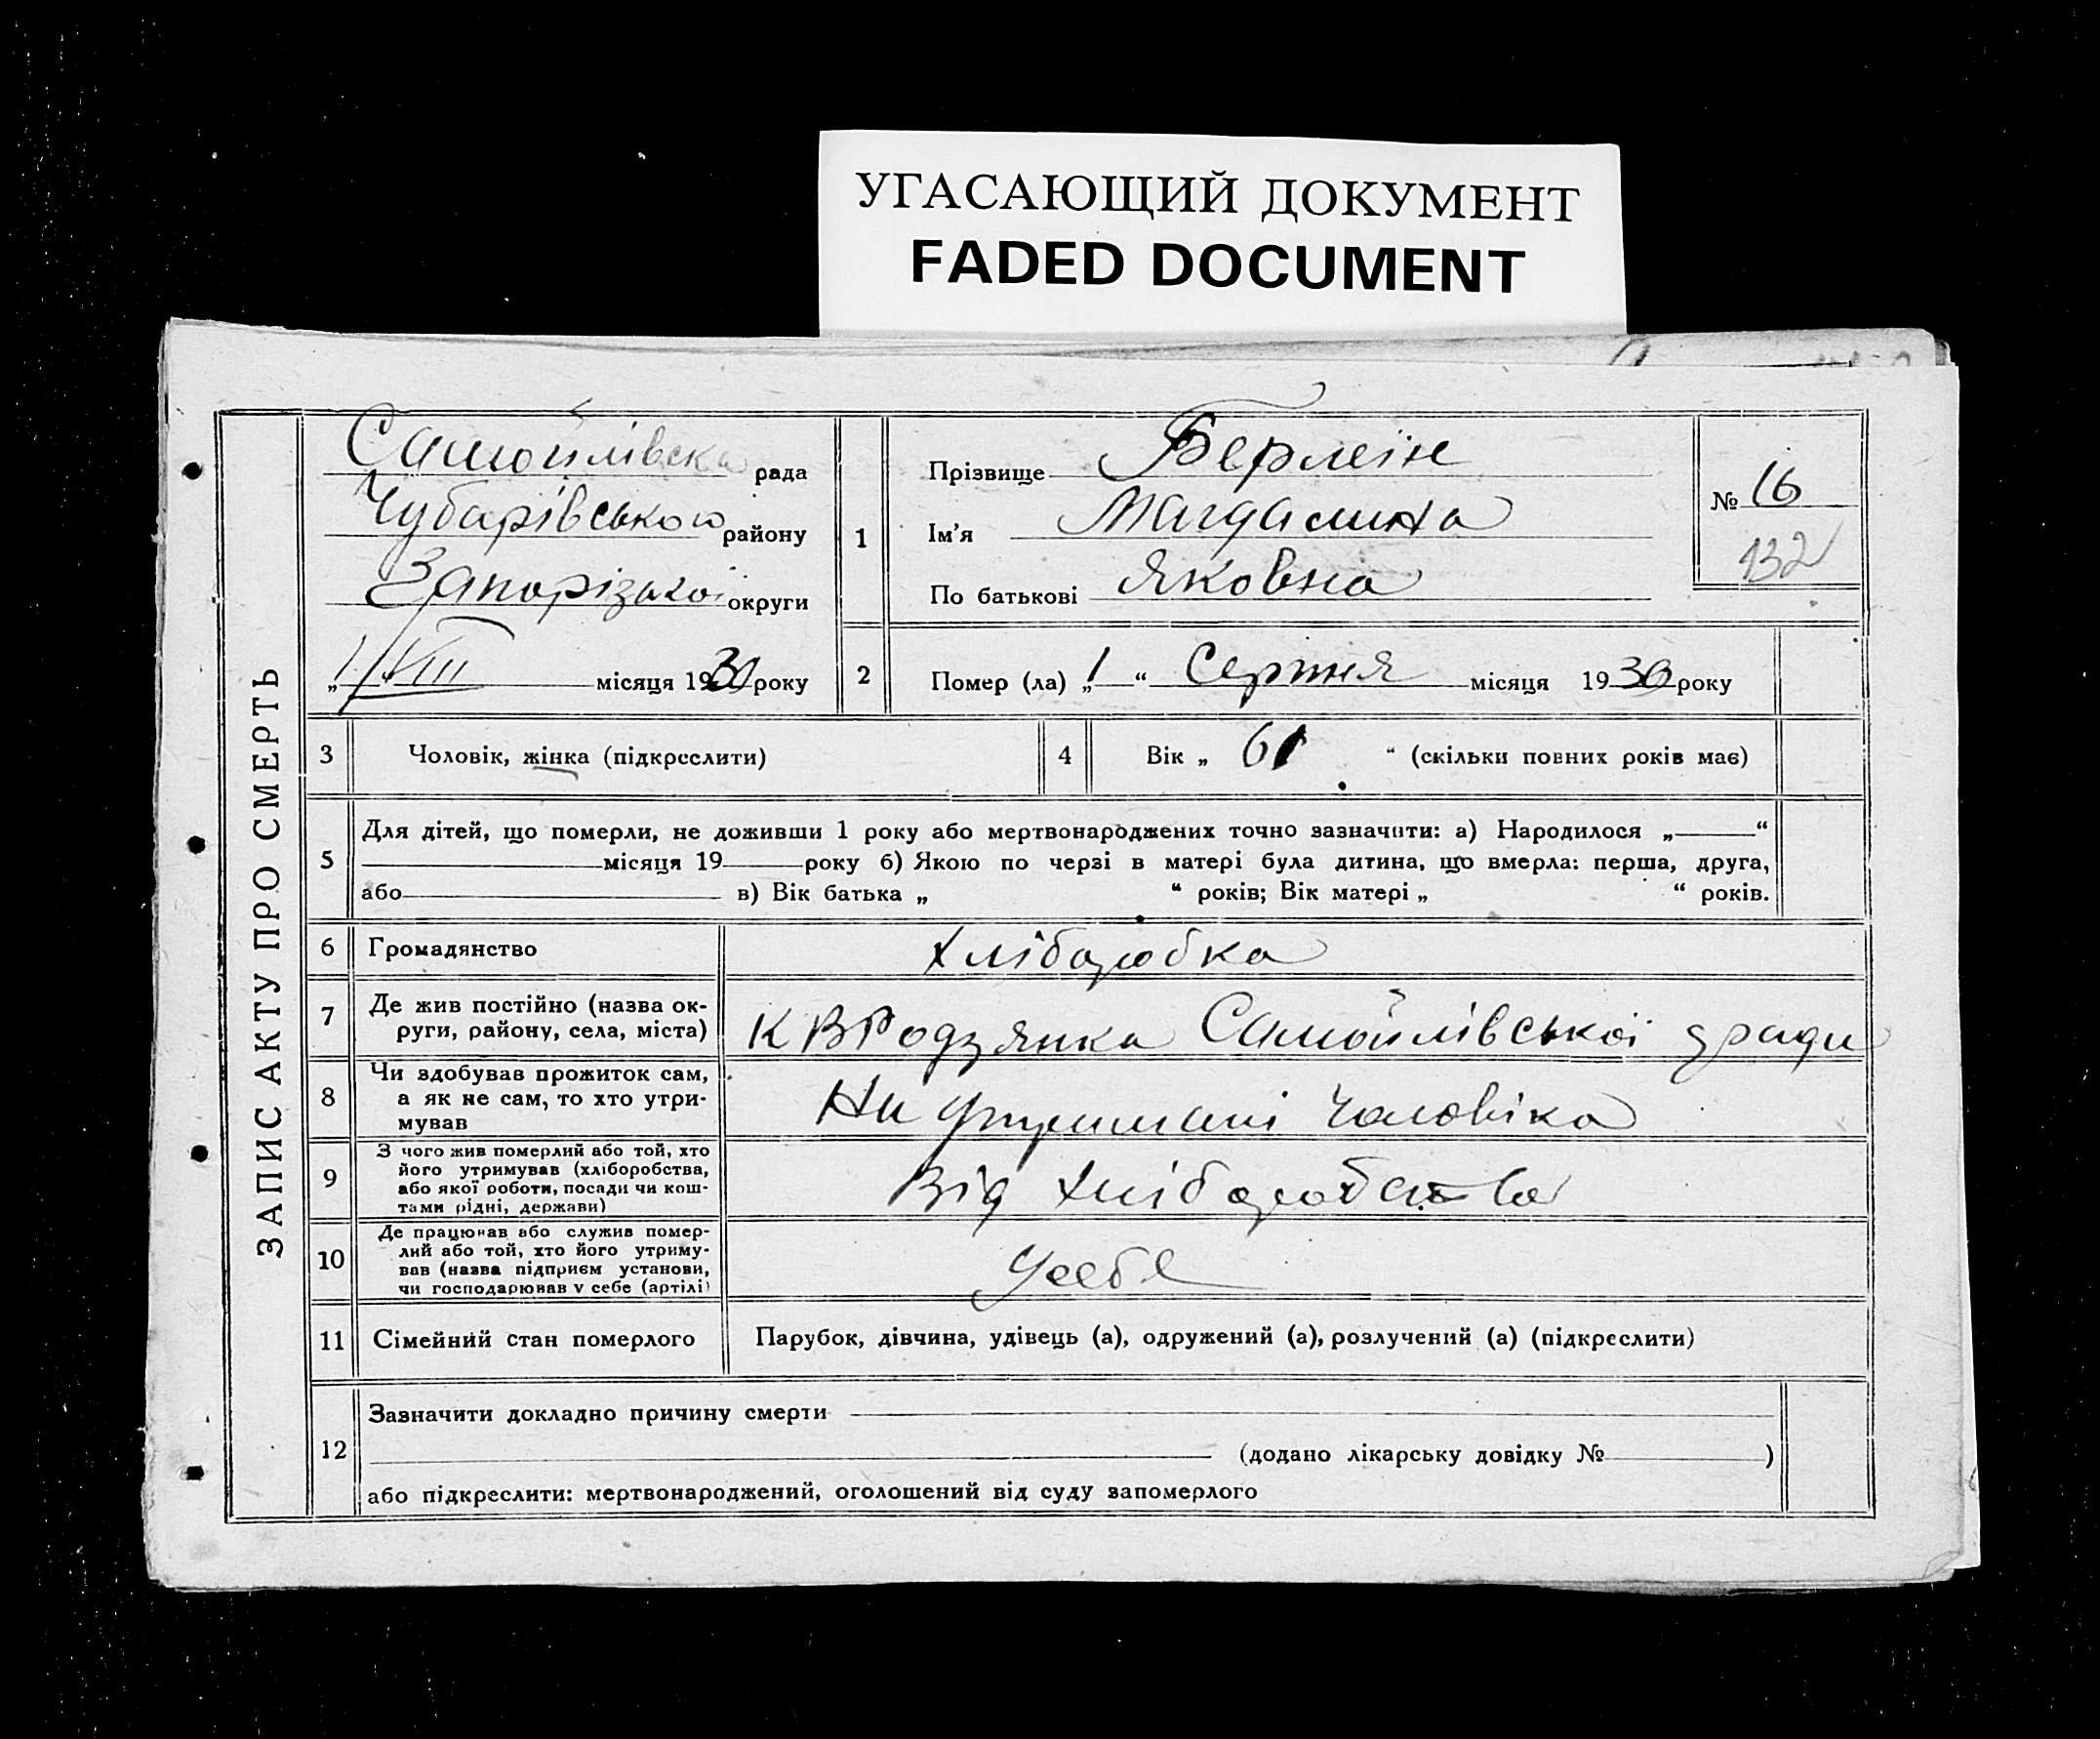 УГАСАЮЩИЙ ДОКУМЕНТ
FADED DOCUMENT
ЗАПИС АКТУ ПРО СМЕРТЬ
Самойлівска рада
Чубарівського району
Запорізької округи
„1“ VIII місяця 1930 року
1
Прізвище Берлеін
Ім'я Магдалина
По батькові Яковна
№ 16
132
2
Помер (ла) „1“ Серпня місяця 1930 року
3 Чоловік, жінка (підкреслити)
4 Вік „ 61 “ (скільки повних років має)
5
Для дітей, що померли, не доживши 1 року або мертвонароджених точно зазначити: а) Народилося „ “
місяця 19 року б) Якою по черзі в матері була дитина, що вмерла: перша, друга,
або в) Вік батька „ “ років; Вік матері „ “ років.
6 Громадянство Хліборобка
7 Де жив постійно (назва ок-
руги, району, села, міста)
К Родзянка Самойлівської ради
8 Чи здобував прожиток сам,
а як не сам, то хто утри-
мував
На утриманні Чоловіка
9 З чого жив померлий або той, хто
його утримував (хліборобства,
або якої роботи, посади чи кош-
тами рідні, держави)
Від Хліборобства
10 Де працював або служив помер-
лий або той, хто його утриму-
вав (назва підприєм установи,
чи господарював у себе (артілі)
Усебе
11 Сімейний стан померлого Парубок, дівчина, удівець (а), одружений (а), розлучений (а) (підкреслити)
12
Зазначити докладно причину смерти
(додано лікарську довідку № )
або підкреслити: мертвонароджений, оголошений від суду запомерлого